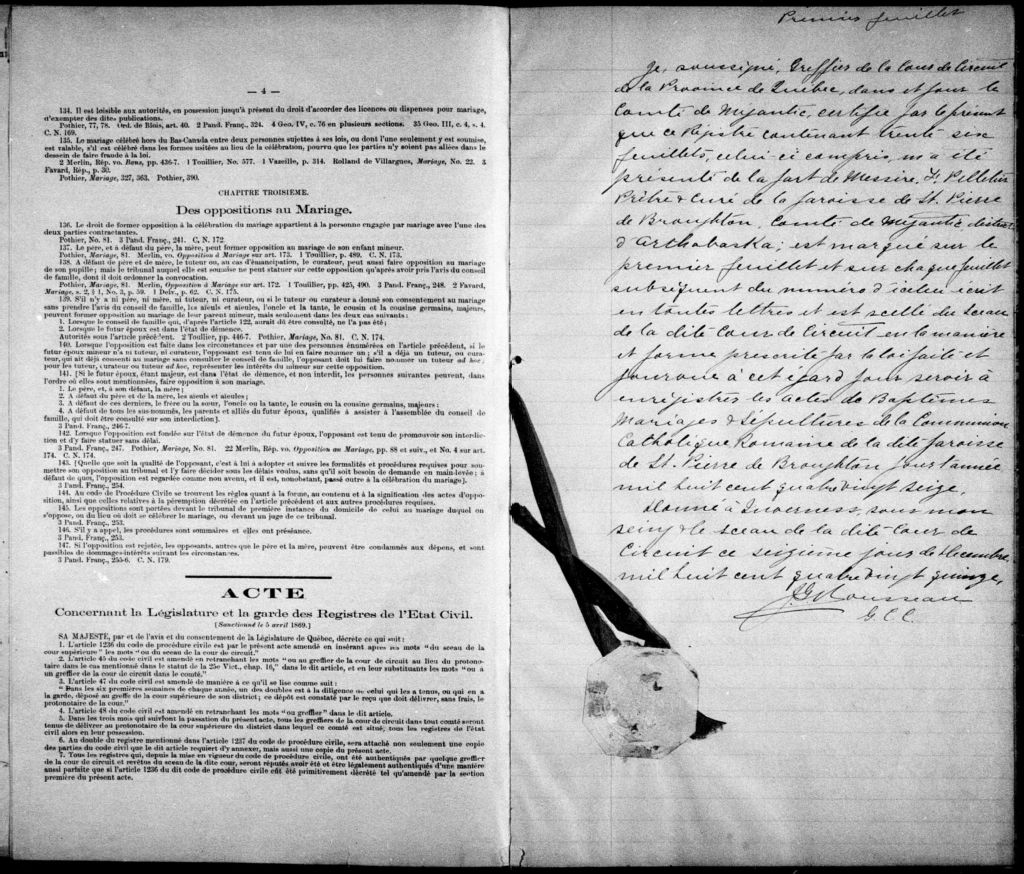 — 4 —
134. Il est loisible aux autorités, en possession jusqu'à présent du droit d'accorder des licences ou dispenses pour mariage,
d'exempter des dites publications.
Pothier, 77, 78. Ord. de Blois, art. 40. 2 Pand. Franç., 324. 4 Geo. IV, c. 76 en plusieurs sections. 35 Geo. III, c. 4, s. 4.
C. N. 169.
135. Le mariage célébré hors du Bas-Canada entre deux personnes sujettes à ses lois, ou dont l'une seulement y est soumise,
est valable, s'il est célébré dans les formes usitées au lieu de la célébration, pourvu que les parties n'y soient pas allées dans le
dessein de faire fraude à la loi.
2 Merlin, Rép. vo. Bans, pp. 436-7. 1 Touillier, No. 577. 1 Vazeille, p. 314. Rolland de Villargues, Mariage, No. 22. 3
Favard, Rép., p. 30.
Pothier, Mariage, 327, 363. Pothier, 390.
CHAPITRE TROISIEME.
Des oppositions au Mariage.
136. Le droit de former opposition à la célébration du mariage appartient à la personne engagée par mariage avec l'une des
deux parties contractantes.
Pothier, No. 81. 3 Pand. Franç., 241. C. N. 172.
137. Le père, et à défaut du père, la mère, peut former opposition au mariage de son enfant mineur.
Pothier, Mariage, 81. Merlin, vo. Opposition à Mariage sur art. 173. 1 Touillier, p. 489. C. N. 173.
138. A défaut de père et de mère, le tuteur ou, au cas d'émancipation, le curateur, peut aussi faire opposition au mariage
de son pupille; mais le tribunal auquel elle est soumise ne peut statuer sur cette opposition qu'après avoir pris l'avis du conseil
de famille, dont il doit ordonner la convocation.
Pothier, Mariage, 81. Merlin, Opposition à Mariage sur art. 172. 1 Touillier, pp. 425, 490. 3 Pand. Franç., 248. 2 Favard,
Mariage, s. 2, § 1, No. 3, p. 59. 1 Delv., p. 62. C. N. 175.
139. S'il n'y a ni père, ni mère, ni tuteur, ni curateur, ou si le tuteur ou curateur a donné son consentement au mariage
sans prendre l'avis du conseil de famille, les aïeuls et aïeules, l'oncle et la tante, le cousin et la cousine germains, majeurs,
peuvent former opposition au mariage de leur parent mineur, mais seulement dans les deux cas suivants:
1. Lorsque le conseil de famille qui, d'après l'article 122, aurait dû être consulté, ne l'a pas été;
2. Lorsque le futur époux est dans l'état de démence.
Autorités sous l'article précédent. 2 Toullier, pp. 446-7. Pothier, Mariage, No. 81. C. N. 174.
140. Lorsque l'opposition est faite dans les circonstances et par une des personnes énumérées en l'article précédent, si le
futur époux mineur n'a ni tuteur, ni curateur, l'opposant est tenu de lui en faire nommer un; s'il a déjà un tuteur, ou cura-
teur, qui ait déjà consenti au mariage sans consulter le conseil de famille, l'opposant doit lui faire nommer un tuteur ad hoc;
pour les tuteur, curateur ou tuteur ad hoc, représenter les intérêts du mineur sur cette opposition.
141. [Si le futur époux, étant majeur, est dans l'état de démence, et non interdit, les personnes suivantes peuvent, dans
l'ordre où elles sont mentionnées, faire opposition à son mariage.
1. Le père, et, à son défaut, la mère;
2. A défaut du père et de la mère, les aïeuls et aïeules;
3. A défaut de ces derniers, le frère ou la sœur, l'oncle ou la tante, le cousin ou la cousine germains, majeurs;
4. A défaut de tous les sus-nommés, les parents et alliés du futur époux, qualifiés à assister à l'assemblée du conseil de
famille, qui doit être consulté sur son interdiction].
3 Pand. Franç., 246-7.
142. Lorsque l'opposition est fondée sur l'état de démence du futur époux, l'opposant est tenu de promouvoir son interdic-
tion et d'y faire statuer sans délai.
3 Pand. Franç., 247. Pothier, Mariage, No. 81. 22 Merlin, Rép. vo. Opposition au Mariage, pp. 88 et suiv., et No. 4 sur art.
174. C. N. 174.
143. [Quelle que soit la qualité de l'opposant, c'est à lui à adopter et suivre les formalités et procédures requises pour sou-
mettre son opposition au tribunal et l'y faire décider sous les délais voulus, sans qu'il soit besoin de demande en main-levée; à
défaut de quoi, l'opposition est regardée comme non avenu, et il est, nonobstant, passé outre à la célébration du mariage].
3 Pand. Franç., 254.
144. Au code de Procédure Civile se trouvent les règles quant à la forme, au contenu et à la signification des actes d'oppo-
sition, ainsi que celles relatives à la péremption décrétée en l'article précédent et aux autres procédures requises.
145. Les oppositions sont portées devant le tribunal de première instance du domicile de celui au mariage duquel on
s'oppose, ou du lieu où doit se célébrer le mariage, ou devant un juge de ce tribunal.
3 Pand. Franç., 253.
146. S'il y a appel, les procédures sont sommaires et elles ont préséance.
3 Pand. Franç., 253.
147. Si l'opposition est rejetée, les opposants, autres que le père et la mère, peuvent être condamnés aux dépens, et sont
passibles de dommages-intérêts suivant les circonstances.
3 Pand. Franç., 255-6. C. N. 179.
ACTE
Concernant la Législature et la garde des Registres de l'Etat Civil.
[Sanctionné le 5 avril 1869.]
SA MAJESTÉ, par et de l'avis et du consentement de la Législature de Québec, décrète ce qui suit:
1. L'article 1236 du code de procédure civile est par le présent acte amendé en insérant après les mots "du sceau de la
cour supérieure" les mots "ou du sceau de la cour de circuit."
2. L'article 45 du code civil est amendé en retranchant les mots "ou au greffier de la cour de circuit au lieu du protono-
taire dans le cas mentionné dans le statut de la 25e Vict., chap. 16," dans le dit article, et en leur substituants les mots "ou à
un greffier de la cour de circuit dans le comté."
3. L'article 47 du code civil est amendé de manière à ce qu'il se lise comme suit:
"Dans les six premières semaines de chaque année, un des doubles est à la diligence de celui qui les a tenus, ou qui en a
la garde, déposé au greffe de la cour supérieure de son district; ce dépôt est constaté par le reçu que doit délivrer, sans frais, le
protonotaire de la cour."
4. L'article 48 du code civil est amendé en retranchant les mots "ou greffier" dans le dit article.
5. Dans les trois mois qui suivront la passation du présent acte, tous les greffiers de la cour de circuit dans tout comté seront
tenus de délivrer au protonotaire de la cour supérieure du district dans lequel ce comté est situé, tous les registres de l'état
civil alors en leur possession.
6. Au double du registre mentionné dans l'article 1237 du code de procédure civile, sera attaché non seulement une copie
des parties du code civil que le dit article requiert d'y annexer, mais aussi une copie du présent acte.
7. Tous les registres qui, depuis la mise en vigueur du code de procédure civile, ont été authentiqués par quelque greffier
de la cour de circuit et revêtus du sceau de la dite cour, seront réputés avoir été et être légalement authentiqués d'une manière
aussi parfaite que si l'article 1236 du dit code de procédure civile eût été primitivement décrété tel qu'amendé par la section
première du présent acte.
Premier feuillet
Je, soussigné, Greffier de la Cour de Circuit
de la Province de Québec, dans et pour le
Comté de Mégantic, certifie par le présent
que ce Registre contenant trente six
feuillets, celui-ci compris, m'a été
présenté de la part de Messire, F. Pelletier
Prêtre & Curé de la Paroisse de St. Pierre
de Broughton, Comté de Mégantic district
d'Arthabaska; est marqué sur le
premier feuillet et sur chaque feuillet
subséquent du numéro d'icelui écrit
en toutes lettres et est scellé du Sceau
de la dite Cour de Circuit en la manière
et forme prescrite par la loi faite et
pourvue à cet égard pour servir à
enrégistrer les actes de Baptêmes
Mariages & Sépultures de la Communion
Catholique Romaine de la dite paroisse
de St. Pierre de Broughton, pour l'année
mil huit cent quatre vingt seize.
Donné à Inverness, sous mon
seing & le sceau de la dite Cour de
Circuit ce seizième jour de Décembre
mil huit cent quatre vingt quinze.
Rousseau
G. C. C.